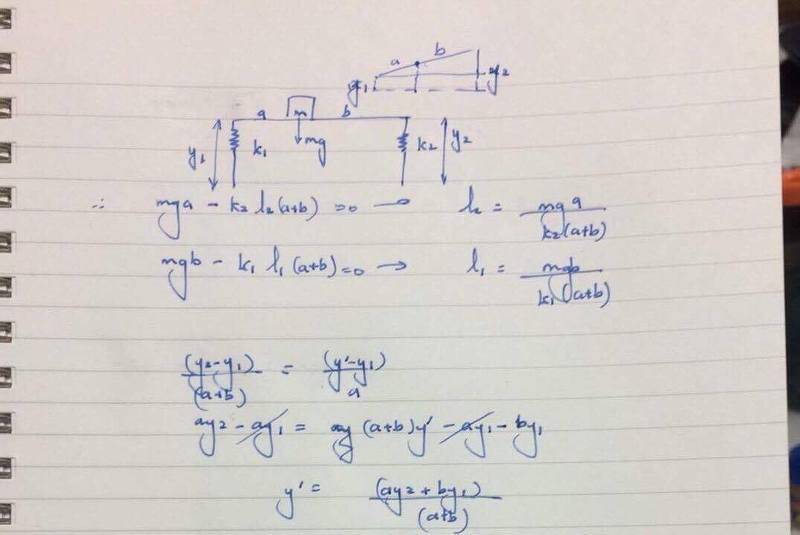 a b
y₁ y₂
a m b
y₁ k₁ mg k₂ y₂
∴ mga - k₂ l₂(a+b) =0 → l₂ = mga / k₂(a+b)
mgb - k₁ l₁(a+b)=0 → l₁ = mgb / k₁(a+b)
(y₂-y₁) / (a+b) = (y'-y₁) / a
ay₂ - ay₁ = (a+b)y' - ay₁ - by₁
y' = (ay₂ + by₁) / (a+b)